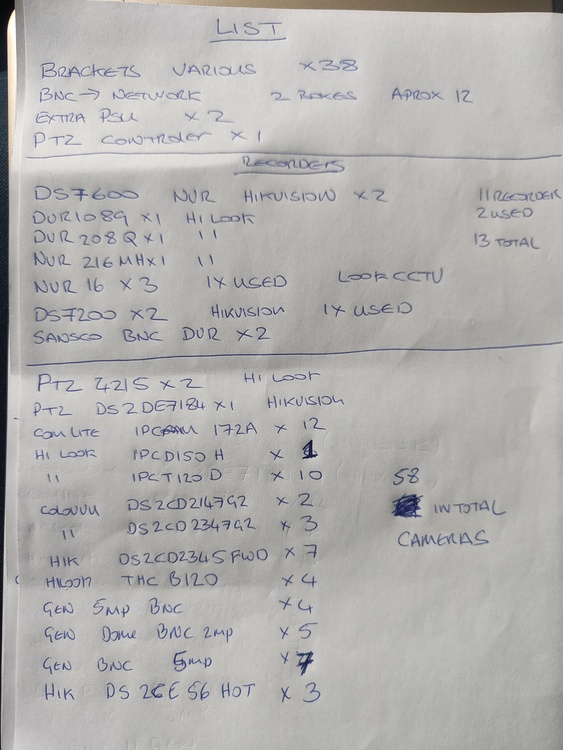 LIST
BRACKETS VARIOUS X38
BNC → NETWORK 2 BOXES APROX 12
EXTRA PSU X 2
PTZ CONTROLER X 1
RECORDERS
DS7600 NVR HIKVISION X 2 11 RECORDER
DVR108G X1 HI LOOK 2 USED
DVR 208Q X1 11 13 TOTAL
NVR 216MH X1 11
NVR 16 X 3 1X USED LOOK CCTV
DS7200 X 2 HIKVISION 1X USED
SANSCO BNC DVR X 2
PTZ 4215 X 2 HI LOOK
PTZ DS2DE7184 X 1 HIKVISION
COMLITE IPCAM 172A X 12
HI LOOK IPCD150H X 1
11 IPCT120D X 10 58
COLOVUU DS2CD2147G2 X 2 IN TOTAL
11 DS2CD2347G2 X 3 CAMERAS
HIK DS2CD2345FWD X 7
HILOOK THC B120 X 4
GEN 5MP BNC X 4
GEN Dome BNC 2MP X 5
GEN BNC 5MP X 7
HIK DS 2CE 56 HOT X 3